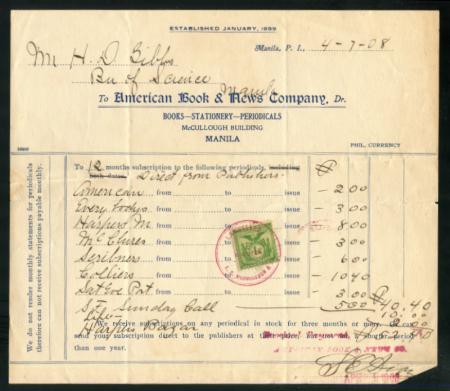 ESTABLISHED JANUARY, 1899
Manila, P. I., 4-7-08
Mr H. D. Gibbs
Bu of Science
Manila
To American Book & News Company, Dr.
BOOKS—STATIONERY—PERIODICALS
McCULLOUGH BUILDING
MANILA
PHIL. CURRENCY
To 12 months subscription to the following periodicals, including
both dates. Direct from Publishers.
American from to issue - 2 00
Everybodys from to issue - 3 00
Harpers M from to issue - 8 00
McClures from to issue - 3 00
Scribners from to issue - 6 00
Colliers from to issue - 10 40
Sat Eve Post from to issue - 3 00
S.F. Sunday Call 5 00 40.40
Life 10.00
Harpers Bazar
We receive subscriptions on any periodical in stock for three months or more, or can
send your subscription direct to the publishers at the shorter period
than one year.
We do not render monthly statements for periodicals
therefore can not receive subscriptions payable monthly.